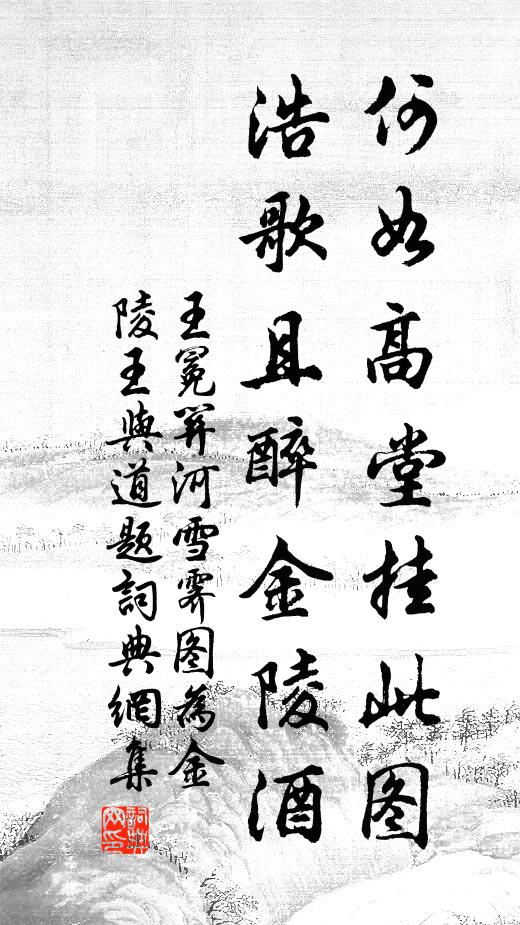 何如高堂挂此图
浩歌且醉金陵酒
王冕關河雪霁图為金
陵王與道题詞典網集
詞典网印